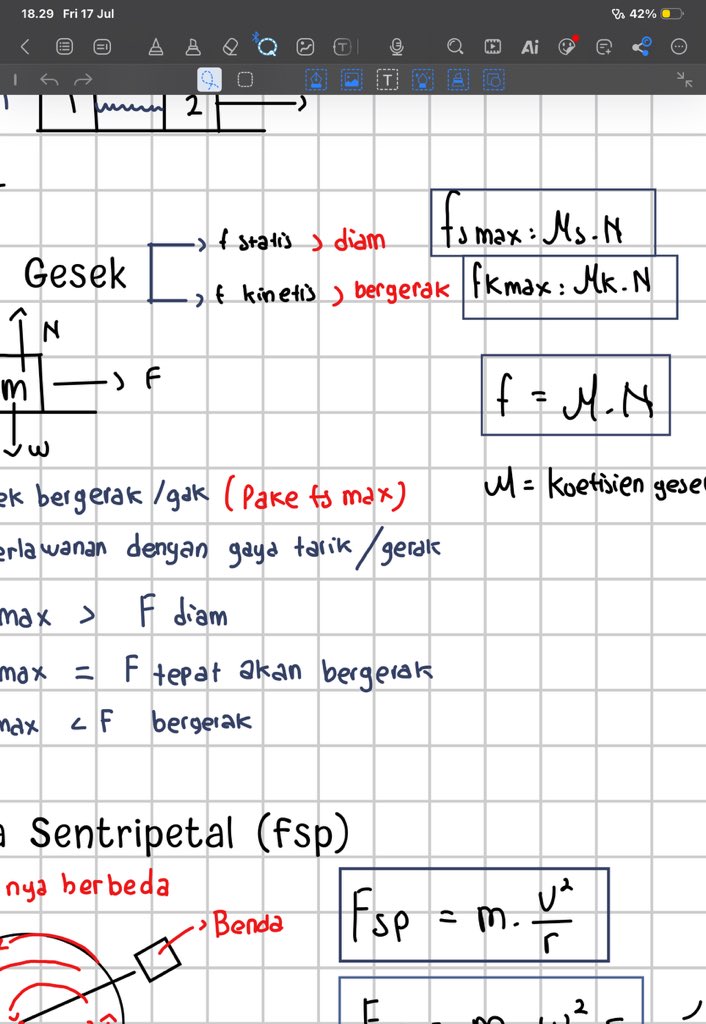 18.29 Fri 17 Jul
42%
Ai
T
1 2
Gesek
f statis → diam
fs max : Ms . N
f kinetis → bergerak
fKmax : Mk . N
N
m → F
w
f = M . N
ek bergerak /gak (Pake fs max)
M = Koefisien gese
erlawanan dengan gaya tarik/gerak
max > F diam
max = F tepat akan bergerak
max < F bergerak
a Sentripetal (fsp)
nya berbeda
Benda
Fsp = m . v²/r